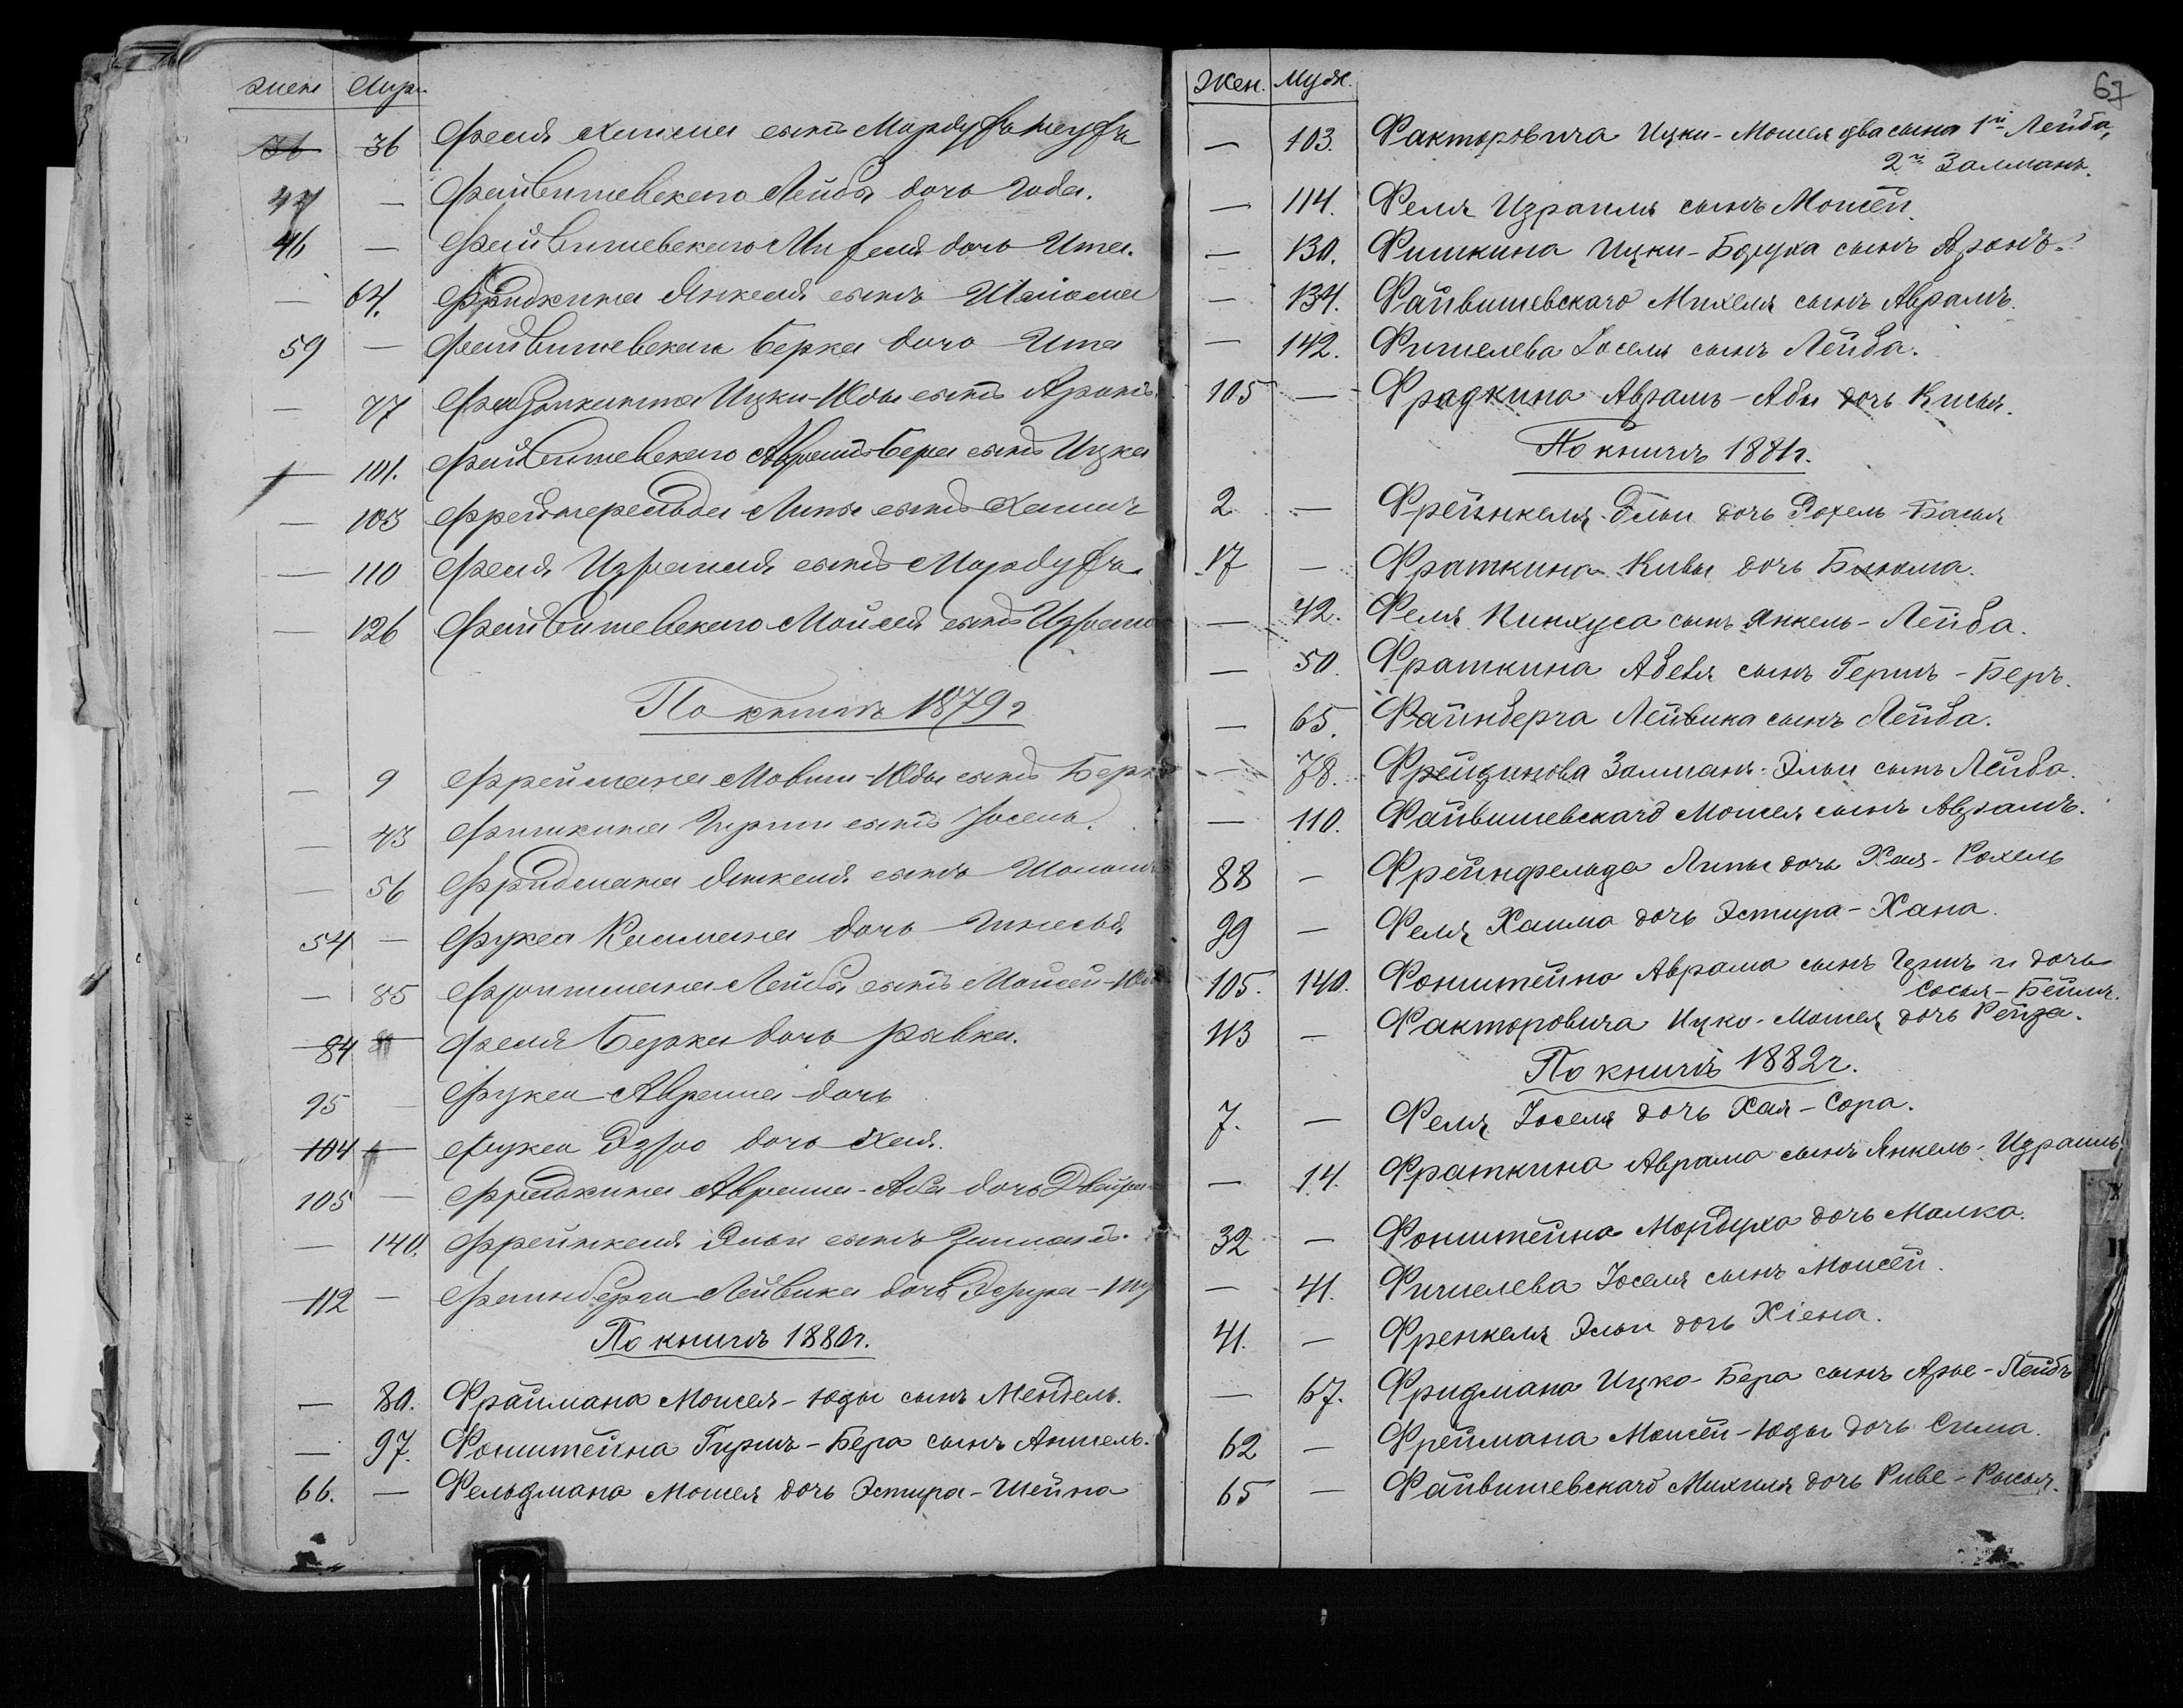 жен Муж.
36 36 Феля Хаима сынъ Мордухъ
47 — Файвишевскаго Лейбы дочь Года.
46 — Файвишевскаго Михеля дочь Ита.
— 64. Фрадкина Янкеля сынъ
59 — Файвишевскаго Берка дочь Ита
— 77 Ицки-Юды сынъ Аронъ
— 101. Файвишевскаго Аврамъ-Бера сынъ Ицка
— 103 Липы сынъ Хаимъ
— 110 Феля Израиля сынъ Мордухъ
— 126 Файвишевскаго Мойсея сынъ
По книгѣ 1879г
— 9 Фреймана Мовши-Юды сынъ
— 43 Фишкина Гирши сынъ Іосель.
— 56 Фридмана Янкеля сынъ
54 — Фукса Калмана дочь
— 85 Лейбы сынъ Мойсей-
84 Феля Берки дочь Рывка.
95 — Фукса Аврама дочь
104 Фукса дочь Хая.
105 — Фрадкина Аврама-Аба дочь Двейра
— 140. Френкеля Эльи сынъ
112 — Файнберга Лейвика дочь
По книгѣ 1880г.
— 80. Фраймана Моисея-Юды сынъ Мендель.
— 97. Фонштейна Гиршъ-Бера сынъ Аншель.
66. — Фельдмана Моисея дочь Эстира-Шейна
67
Жен. Муж.
— 103. Факторовича Ицки-Моисея два сына 1й Лейба,
2й Залманъ.
— 114. Феля Израиля сынъ Моисей.
— 130. Фишкина Ицки-Боруха сынъ Аронъ.
— 134. Файвишевскаго Михеля сынъ Аврамъ.
— 142. Фишелева Іоселя сынъ Лейба.
105 — Фрадкина Аврамъ-Абы дочь
По книгѣ 1881г.
2 — Фрейнкеля Эльи дочь Рохель-Басья
17 — Фраткина Кивы дочь
— 42. Феля Пинхуса сынъ Янкель-Лейба.
— 50. Фраткина Абеля сынъ Гершъ-Беръ.
— 65. Файнберга Лейвика сынъ Лейба.
— 78. Фрейдинова Залманъ-Эльи сынъ Лейба.
— 110. Файвишевскаго Моисея сынъ Аврамъ.
88 — Фрейнфельда Липы дочь Хая-Рохель
99 — Феля Хаима дочь Эстира-Хана.
105. 140. Фонштейна Аврама сынъ Гершъ и дочь
Сосья-Бейля.
113 — Факторовича Ицко-Моисея дочь Рейза.
По книгѣ 1882г.
7. — Феля Іоселя дочь Хая-Сора.
— 14. Фраткина Аврама сынъ Янкель-Израиль.
32 — Фонштейна Мордуха дочь Малка.
— 41. Фишелева Іоселя сынъ Моисей.
41. — Френкеля Эльи дочь Хіена.
— 67. Фридмана Ицко-Бера сынъ Арье-Лейбъ
62 — Фреймана Моисей-Юды дочь Сима.
65 — Файвишевскаго Михиля дочь Риве-Рысья.